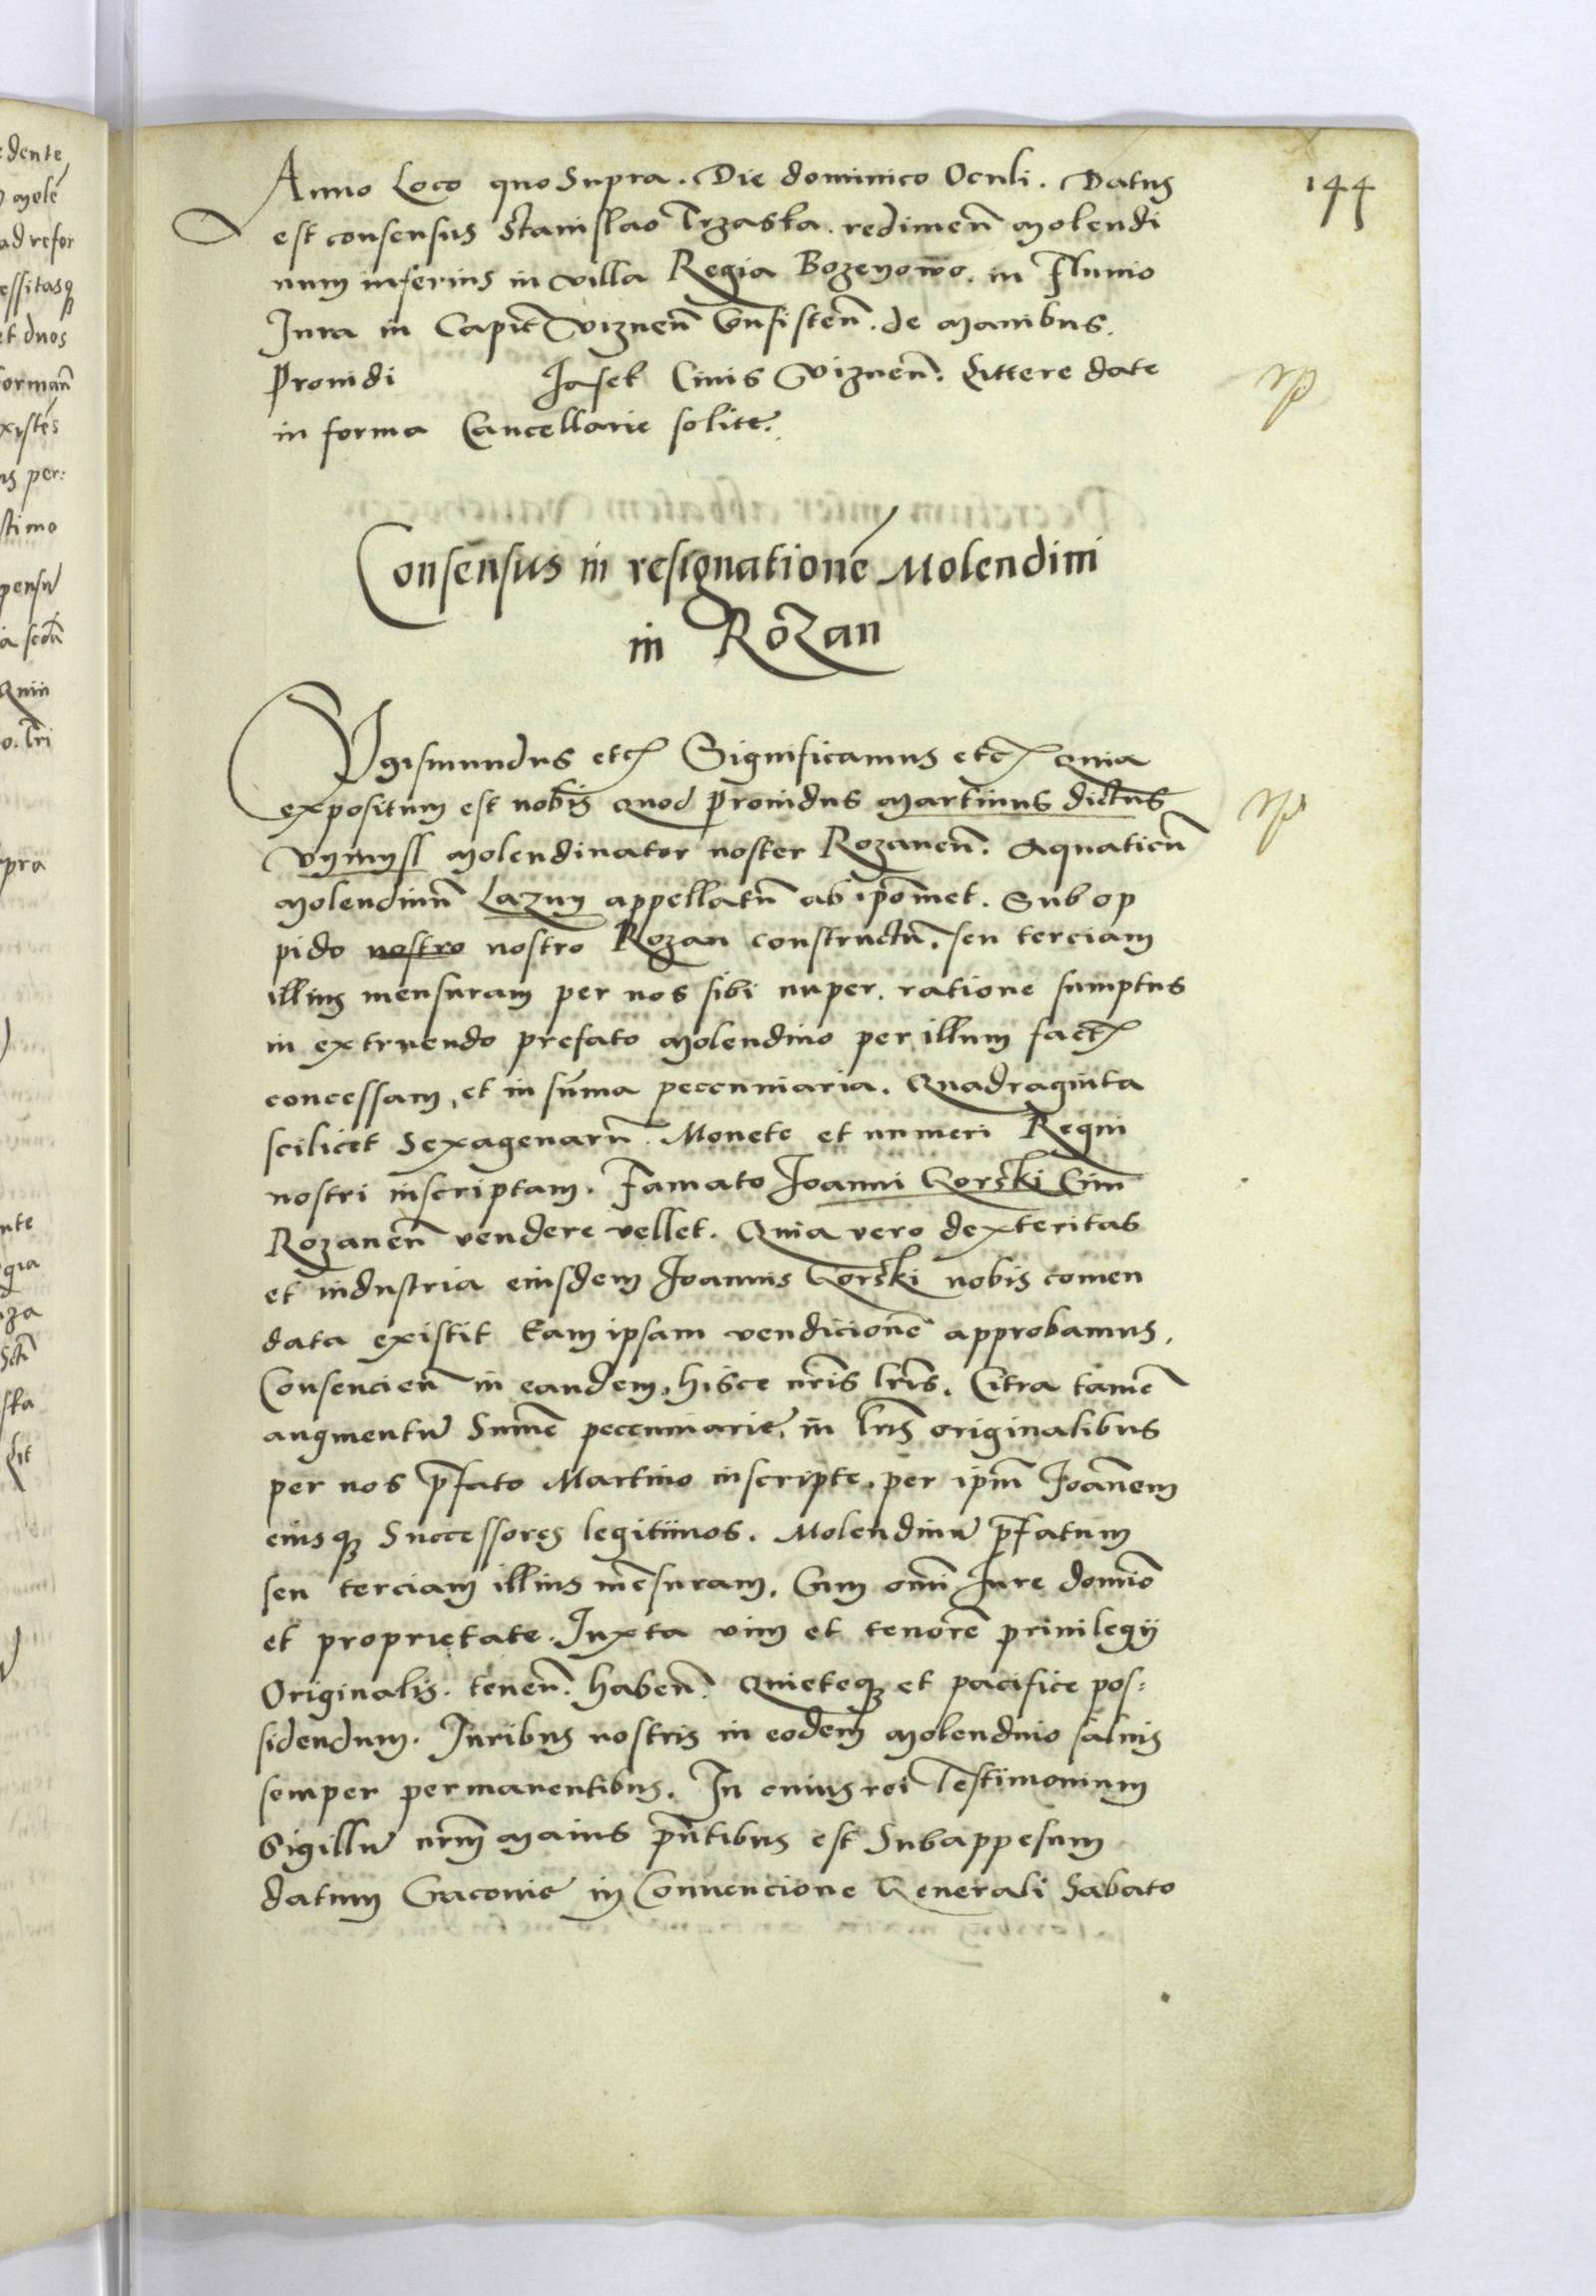 144
Anno Loco quo Supra. Die dominico Oculi. Datus
est consensus Stanislao Trzaska. redimen̄ Molendi
num inferius in villa Regia Bozenowo. in Fluuio
Jura in Capit̄ Viznen̄ Consisten̄. de Manibus.
Prouidi Jasek Ciuis Viznen̄. Littere date
in forma Cancellarie solite.
Consensus in resignationē Molendini
in Rozan
Sygismundus etc Significamus etc quia
expositum est nobis quod prouidus Martinus dictus
Vymysl Molendinator noster Rozanen̄. Aquaticū
Molendinū Lazny appellatū ab ip̄omet. Sub op
pido nostro nostro Rozan constructū. seu terciam
illius mensuram per nos sibi nuper. ratione sumptus
in extruendo prefato Molendino per illum fact
concessam, et in sūma pecunniaria. Quadraginta
scilicet Sexagenarū. Monete et numeri Regni
nostri inscriptam. Famato Joanni Gorski Ciui
Rozanen̄ vendere vellet. Quia vero dexteritas
et industria eiusdem Joannis Gorski nobis comen
data existit Eam ipsam vendicionē approbamus.
Consencien̄ in eandem, hisce nr̄is lr̄is. Citra tamē
augmentū Summe pecunniarie, in lr̄is originalibus
per nos p̄fato Martino inscripte. per ip̄m Joannem
eiusq Successores legitimos. Molendinū p̄fatum
seu terciam illius mēsuram. Cum om̄i Jure domīo
et proprietate. Juxta vim et tenorē priuilegij
Originalis. tenen̄. haben̄. quieteq et pacifice pos=
sidendum. Juribus nostris in eodem Molendino saluis
semper permanentibus. In cuius rei Testimonium
Sigillū nr̄m Maius p̄ntibus est Subappesum
datum Cracouie in Conuencione Generali Sabato